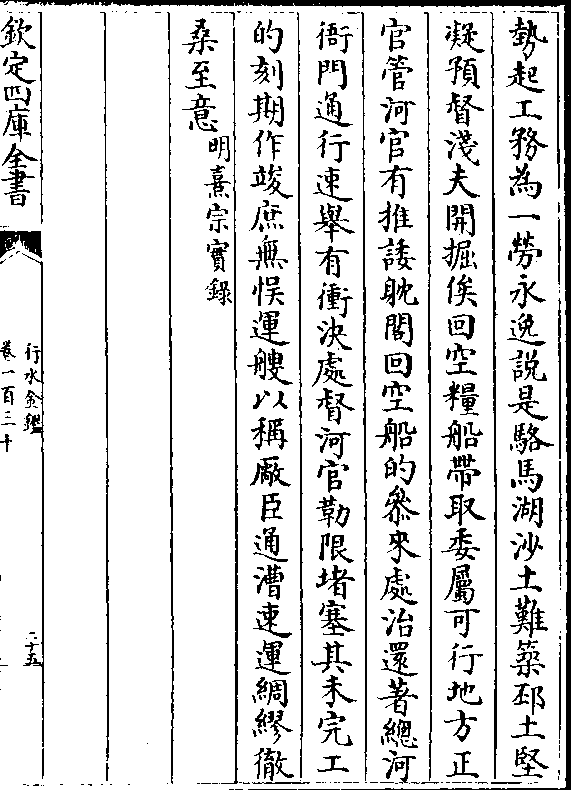 勢起工務為一勞永逸說是駱馬湖沙土難築邳土堅
凝預督淺夫開掘俟回空糧船帶取委屬可行地方正
官管河官有推諉躭閣回空船的叅來處治還著總河
衙門通行速舉有衝決處督河官勒限堵塞其未完工
的刻期作竣庶無悞運艘以稱厰臣通漕速運綢繆徹
桑至意明熹宗實録
欽定四庫全書
行水金鑑
卷一百三十
二十五